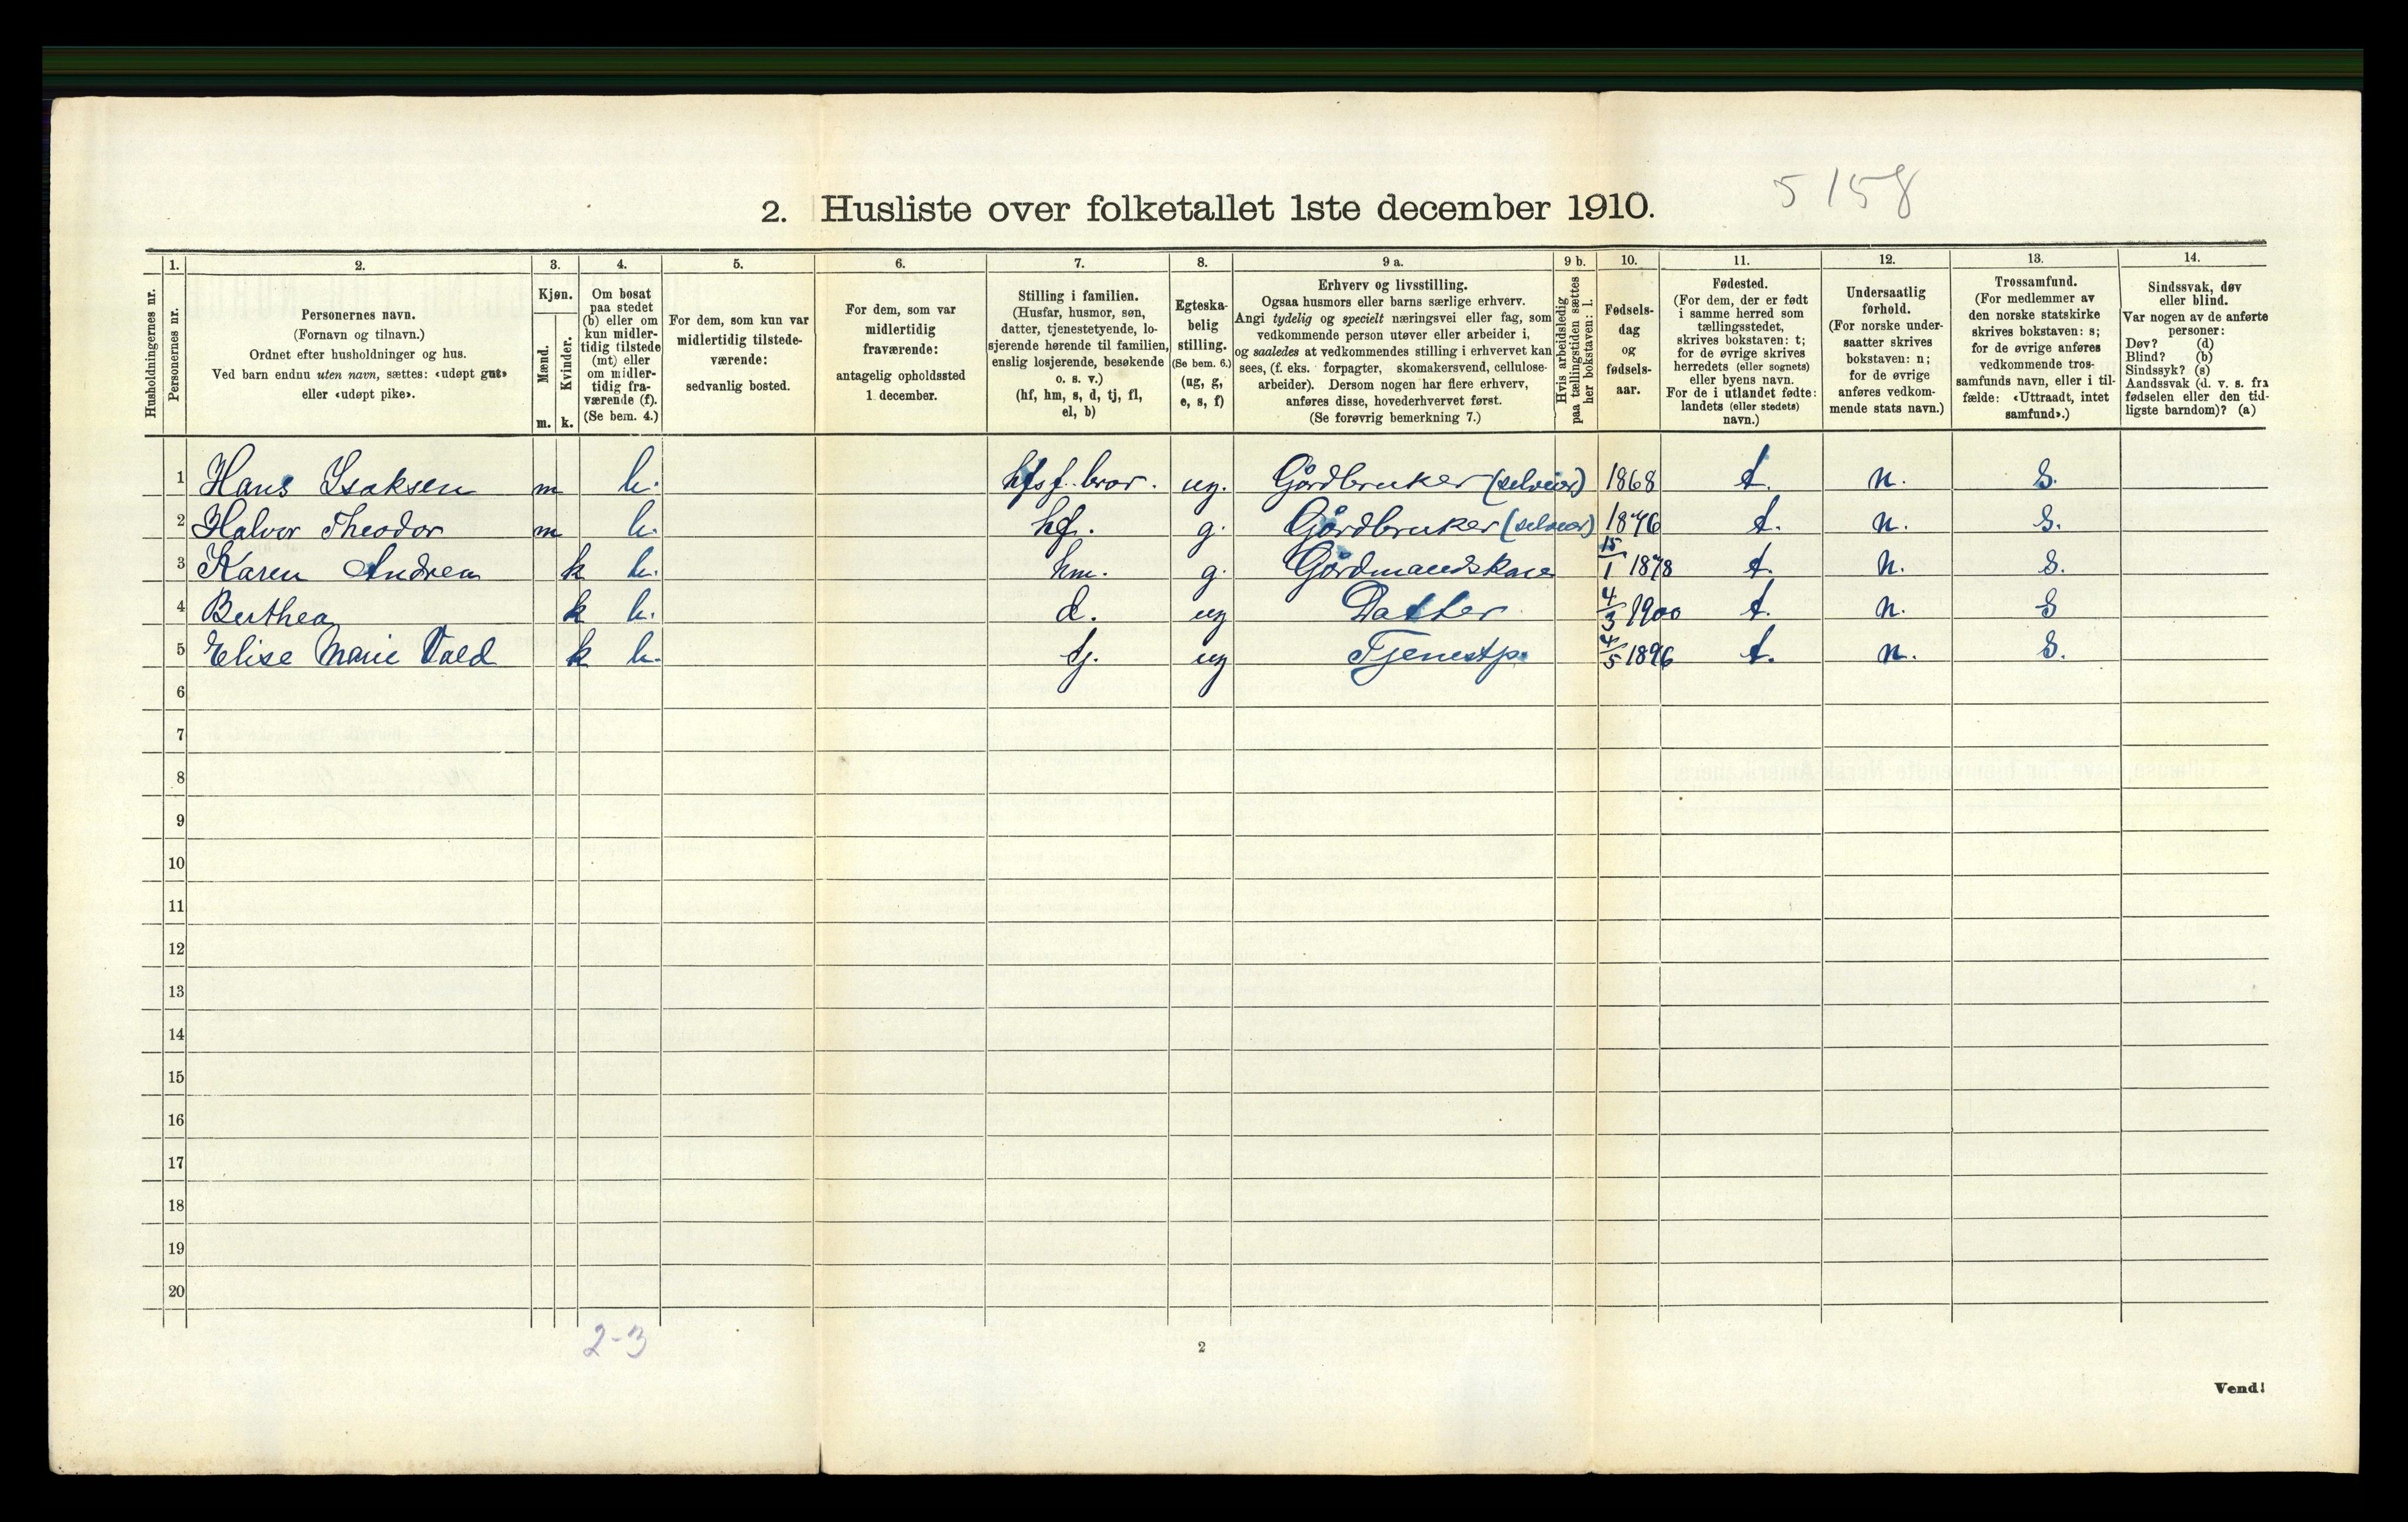 5 158
2. Husliste over folketallet 1ste december 1910.
Husholdningernes nr.
1. Personernes nr.
2. Personernes navn.
(Fornavn og tilnavn.)
Ordnet efter husholdninger og hus.
Ved barn endnu uten navn, sættes: «udøpt gut»
eller «udøpt pike».
3. Kjøn.
Mænd. m.
Kvinder. k.
4. Om bosat
paa stedet
(b) eller om
kun midler-
tidig tilstede
(mt) eller
om midler-
tidig fra-
værende (f).
(Se bem. 4.)
5. For dem, som kun var
midlertidig tilstede-
værende:
sedvanlig bosted.
6. For dem, som var
midlertidig
fraværende:
antagelig opholdssted
1 december.
7. Stilling i familien.
(Husfar, husmor, søn,
datter, tjenestetyende, lo-
sjerende hørende til familien,
enslig losjerende, besøkende
o. s. v.)
(hf, hm, s, d, tj, fl,
el, b)
8. Egteska-
belig
stilling.
(Se bem. 6.)
(ug, g,
e, s, f)
9 a. Erhverv og livsstilling.
Ogsaa husmors eller barns særlige erhverv.
Angi tydelig og specielt næringsvei eller fag, som
vedkommende person utøver eller arbeider i,
og saaledes at vedkommendes stilling i erhvervet kan
sees, (f. eks. forpagter, skomakersvend, cellulose-
arbeider). Dersom nogen har flere erhverv,
anføres disse, hovederhvervet først.
(Se forøvrig bemerkning 7.)
9 b. Hvis arbeidsledig
paa tællingstiden sættes
her bokstaven: l.
10. Fødsels-
dag
og
fødsels-
aar.
11. Fødested.
(For dem, der er født
i samme herred som
tællingsstedet,
skrives bokstaven: t;
for de øvrige skrives
herredets (eller sognets)
eller byens navn.
For de i utlandet fødte:
landets (eller stedets)
navn.)
12. Undersaatlig
forhold.
(For norske under-
saatter skrives
bokstaven: n;
for de øvrige
anføres vedkom-
mende stats navn.)
13. Trossamfund.
(For medlemmer av
den norske statskirke
skrives bokstaven: s;
for de øvrige anføres
vedkommende tros-
samfunds navn, eller i til-
fælde: «Uttraadt, intet
samfund».)
14. Sindssvak, døv
eller blind.
Var nogen av de anførte
personer:
Døv? (d)
Blind? (b)
Sindssyk? (s)
Aandssvak (d. v. s. fra
fødselen eller den tid-
ligste barndom)? (a)
1 Hans Isaksen m b. hfsf. bror. ug. Gårdbruker (selveier) 1868 t. n. S.
2 Halvor Theodor m b. hf. g. Gårdbruker (selveier) 1876 t. n. S.
3 Karen Andrea k b. hm. g. Gårdmandskone 15/1 1878 t. n. S.
4 Berthea k b. d. ug Datter 4/3 1900 t. n. S
5 Elise Marie k b. tj. ug Tjenestp. 4/5 1896 t. n. S.
6
7
8
9
10
11
12
13
14
15
16
17
18
19
20
2-3
2
Vend!